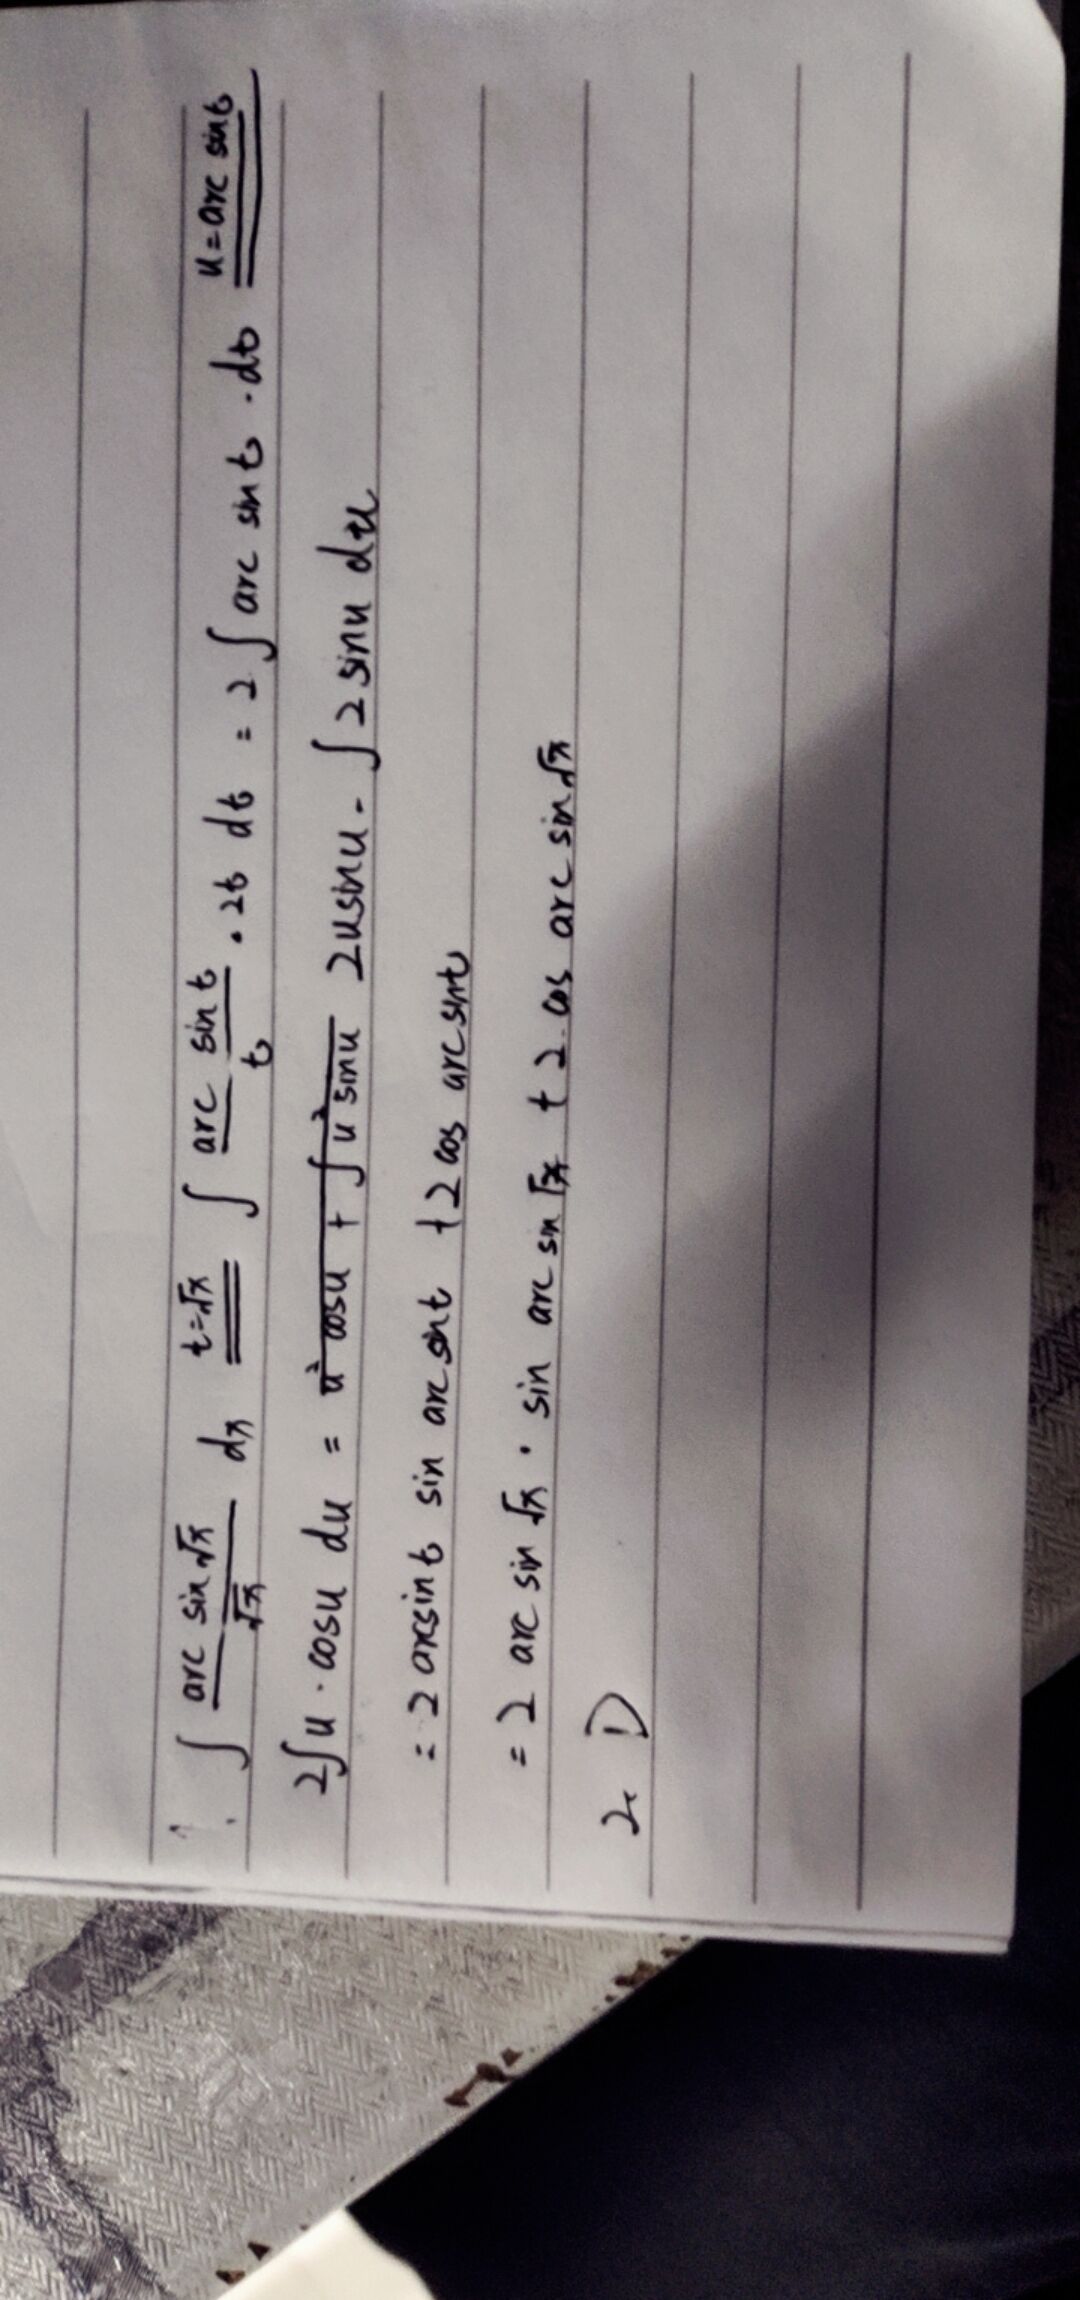 1. ∫ arc sin√x / √x dx t=√x ∫ arc sin t / t · 2t dt = 2 ∫ arc sin t · dt u = arc sin t
2∫u · cosu du = u² cosu + ∫ u² sinu 2usinu - ∫ 2 sinu du
= 2 arcsint sin arc sint + 2 cos arc sint
= 2 arc sin √x · sin arc sin √x + 2 · cos arc sin √x
2. D